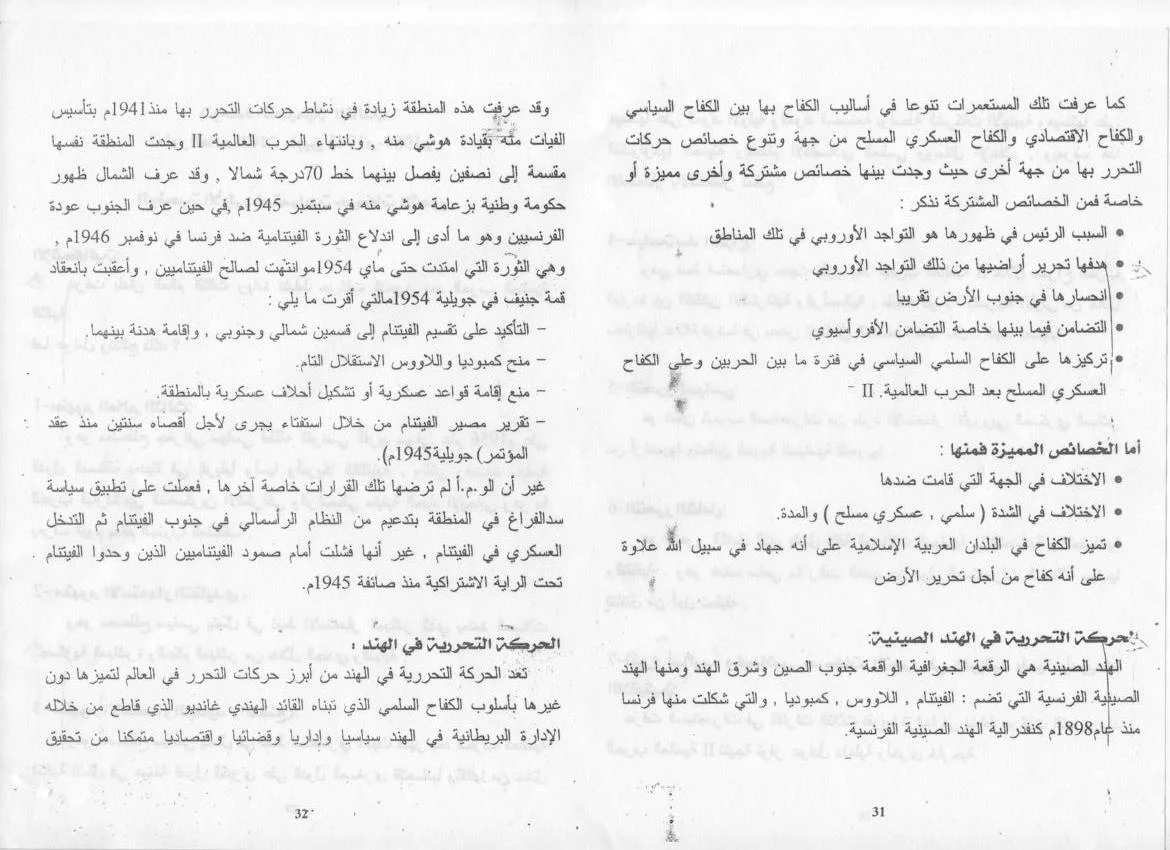 كما عرفت تلك المستعمرات تنوعا في أساليب الكفاح بها بين الكفاح السياسي
والكفاح الاقتصادي والكفاح العسكري المسلح من جهة وتنوع خصائص حركات
التحرر بها من جهة أخرى حيث وجدت بينها خصائص مشتركة وأخرى مميزة أو
خاصة فمن الخصائص المشتركة نذكر :
• السبب الرئيس في ظهورها هو التواجد الأوروبي في تلك المناطق
• هدفها تحرير أراضيها من ذلك التواجد الأوروبي
• انحسارها في جنوب الأرض تقريبا
• التضامن فيما بينها خاصة التضامن الأفروأسيوي
• تركيزها على الكفاح السلمي السياسي في فترة ما بين الحربين وعلى الكفاح
العسكري المسلح بعد الحرب العالمية. II
أما الخصائص المميزة فمنها :
• الاختلاف في الجهة التي قامت ضدها
• الاختلاف في الشدة ( سلمي , عسكري مسلح ) والمدة.
• تميز الكفاح في البلدان العربية الإسلامية على أنه جهاد في سبيل الله علاوة
على أنه كفاح من أجل تحرير الأرض
الحركة التحررية في الهند الصينية:
الهند الصينية هي الرقعة الجغرافية الواقعة جنوب الصين وشرق الهند ومنها الهند
الصينية الفرنسية التي تضم : الفيتنام , اللاووس , كمبوديا , والتي شكلت منها فرنسا
منذ عام1898م كنفدرالية الهند الصينية الفرنسية.
31
وقد عرفت هذه المنطقة زيادة في نشاط حركات التحرر بها منذ1941م بتأسيس
الفيات منه بقيادة هوشي منه , وبانتهاء الحرب العالمية II وجدت المنطقة نفسها
مقسمة إلى نصفين يفصل بينهما خط 70درجة شمالا , وقد عرف الشمال ظهور
حكومة وطنية بزعامة هوشي منه في سبتمبر 1945م ,في حين عرف الجنوب عودة
الفرنسيين وهو ما أدى إلى اندلاع الثورة الفيتنامية ضد فرنسا في نوفمبر 1946م ,
وهي الثورة التي امتدت حتى ماي 1954موانتهت لصالح الفيتناميين , وأعقبت بانعقاد
قمة جنيف في جويلية 1954مالتي أقرت ما يلي :
– التأكيد على تقسيم الفيتنام إلى قسمين شمالي وجنوبي , وإقامة هدنة بينهما.
– منح كمبوديا واللاووس الاستقلال التام.
– منع إقامة قواعد عسكرية أو تشكيل أحلاف عسكرية بالمنطقة.
– تقرير مصير الفيتنام من خلال استفتاء يجرى لأجل أقصاه سنتين منذ عقد
المؤتمر) جويلية1945م).
غير أن الو.م.أ لم ترضها تلك القرارات خاصة آخرها , فعملت على تطبيق سياسة
سدالفراغ في المنطقة بتدعيم من النظام الرأسمالي في جنوب الفيتنام ثم التدخل
العسكري في الفيتنام , غير أنها فشلت أمام صمود الفيتناميين الذين وحدوا الفيتنام
تحت الراية الاشتراكية منذ صائفة 1945م.
الحركة التحررية في الهند :
تعد الحركة التحررية في الهند من أبرز حركات التحرر في العالم لتميزها دون
غيرها بأسلوب الكفاح السلمي الذي تبناه القائد الهندي غانديو الذي قاطع من خلاله
الإدارة البريطانية في الهند سياسيا وإداريا وقضائيا واقتصاديا متمكنا من تحقيق
32